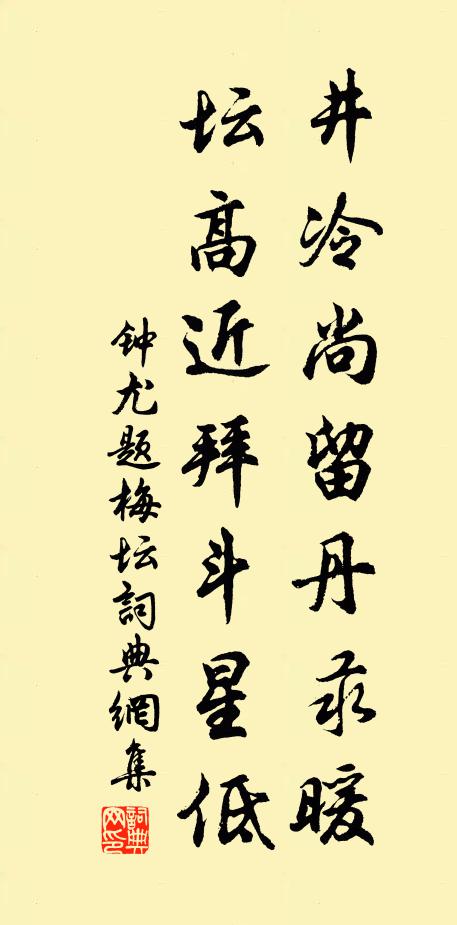 井冷尚留丹汞暖
坛高近拜斗星低
钟尤题梅坛詞典網集
詞典网印